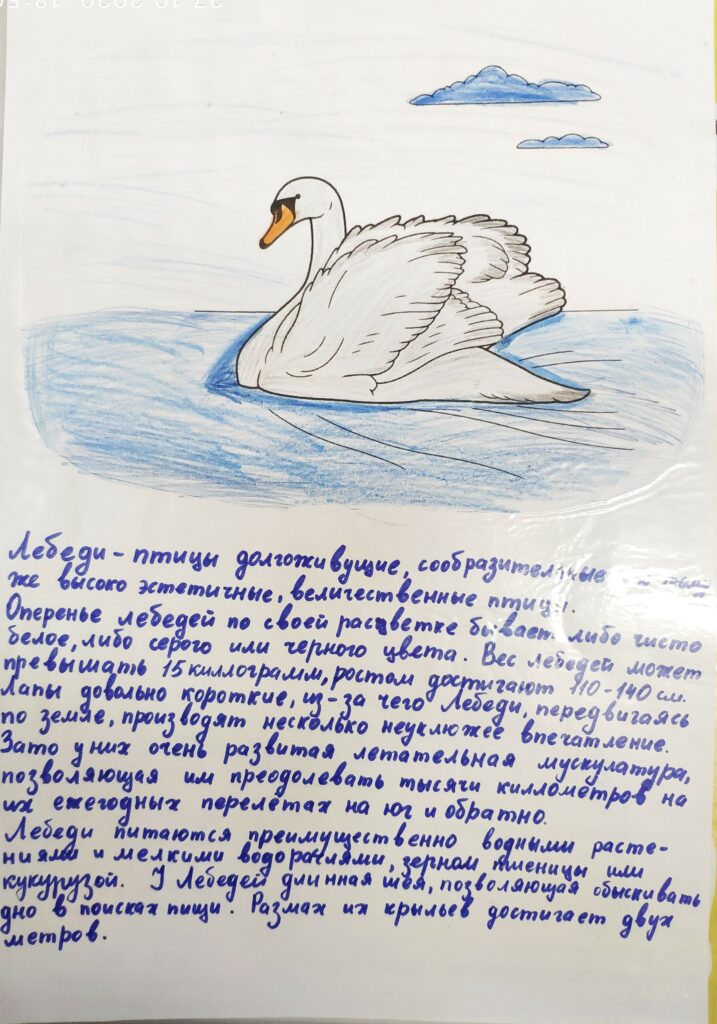 27.10.2020 18:50
Лебеди - птицы долгоживущие, сообразительные
же высоко эстетичные, величественные птицы.
Оперенье лебедей по своей расцветке бывает либо чисто
белое, либо серого или черного цвета. Вес лебедей может
превышать 15 киллограмм, ростом достигают 110-140 см.
Лапы довольно короткие, из-за чего Лебеди, передвигаясь
по земле, производят несколько неуклюжее впечатление.
Зато у них очень развитая летательная мускулатура,
позволяющая им преодолевать тысячи киллометров на
их ежегодных перелётах на юг и обратно.
Лебеди питаются преимущественно водными расте-
ниями и мелкими водорослями, зерном пшеницы или
кукурузой. У Лебедей длинная шея, позволяющая обыскивать
дно в поисках пищи. Размах их крыльев достигает двух
метров.